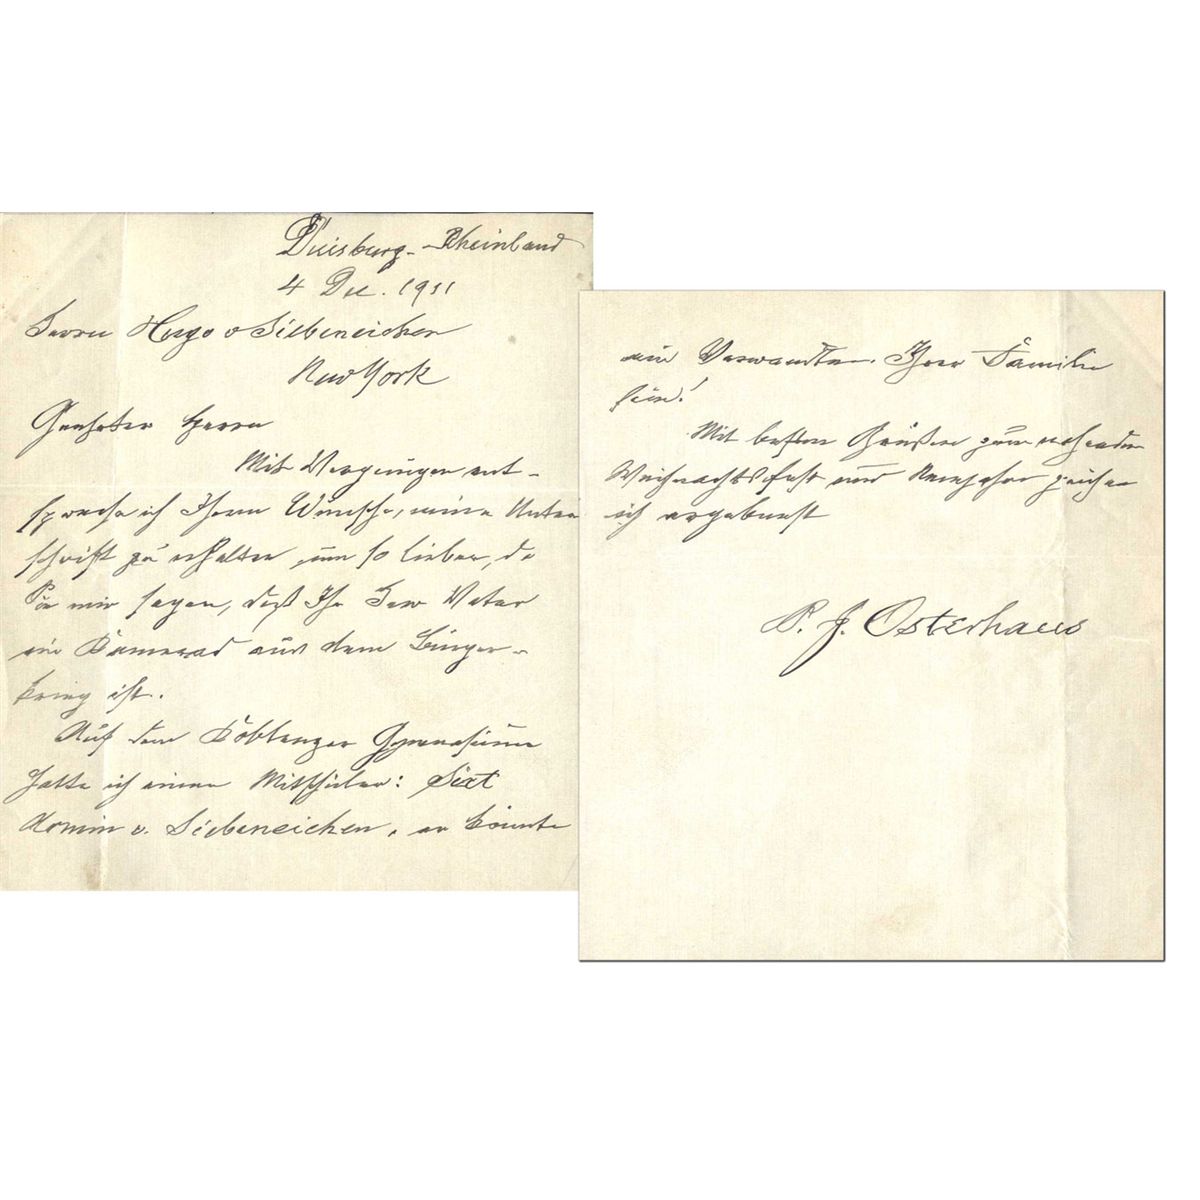 Duisburg-Rheinland
4 Dec. 1911
Herrn Hugo v Siebeneichen
New York
Geehrter Herrn
Mit Vergnügen ent-
spreche ich Ihrem Wunsche, meine Unter
schrift zu erhalten um so lieber, da
Sie mir sagen, daß Ihr Herr Vater
ein Kamerad aus dem Bürger-
krieg ist.
Auf dem Koblenzer Gymnasium
hatte ich einen Mitschüler: Sixt
Armin v. Siebeneichen, er könnte
ein Verwandter Ihrer Familie
sein!
Mit besten Grüßen zum nahenden
Weihnachtsfest und Neujahr zeichne
ich ergebenst
P. J. Osterhaus